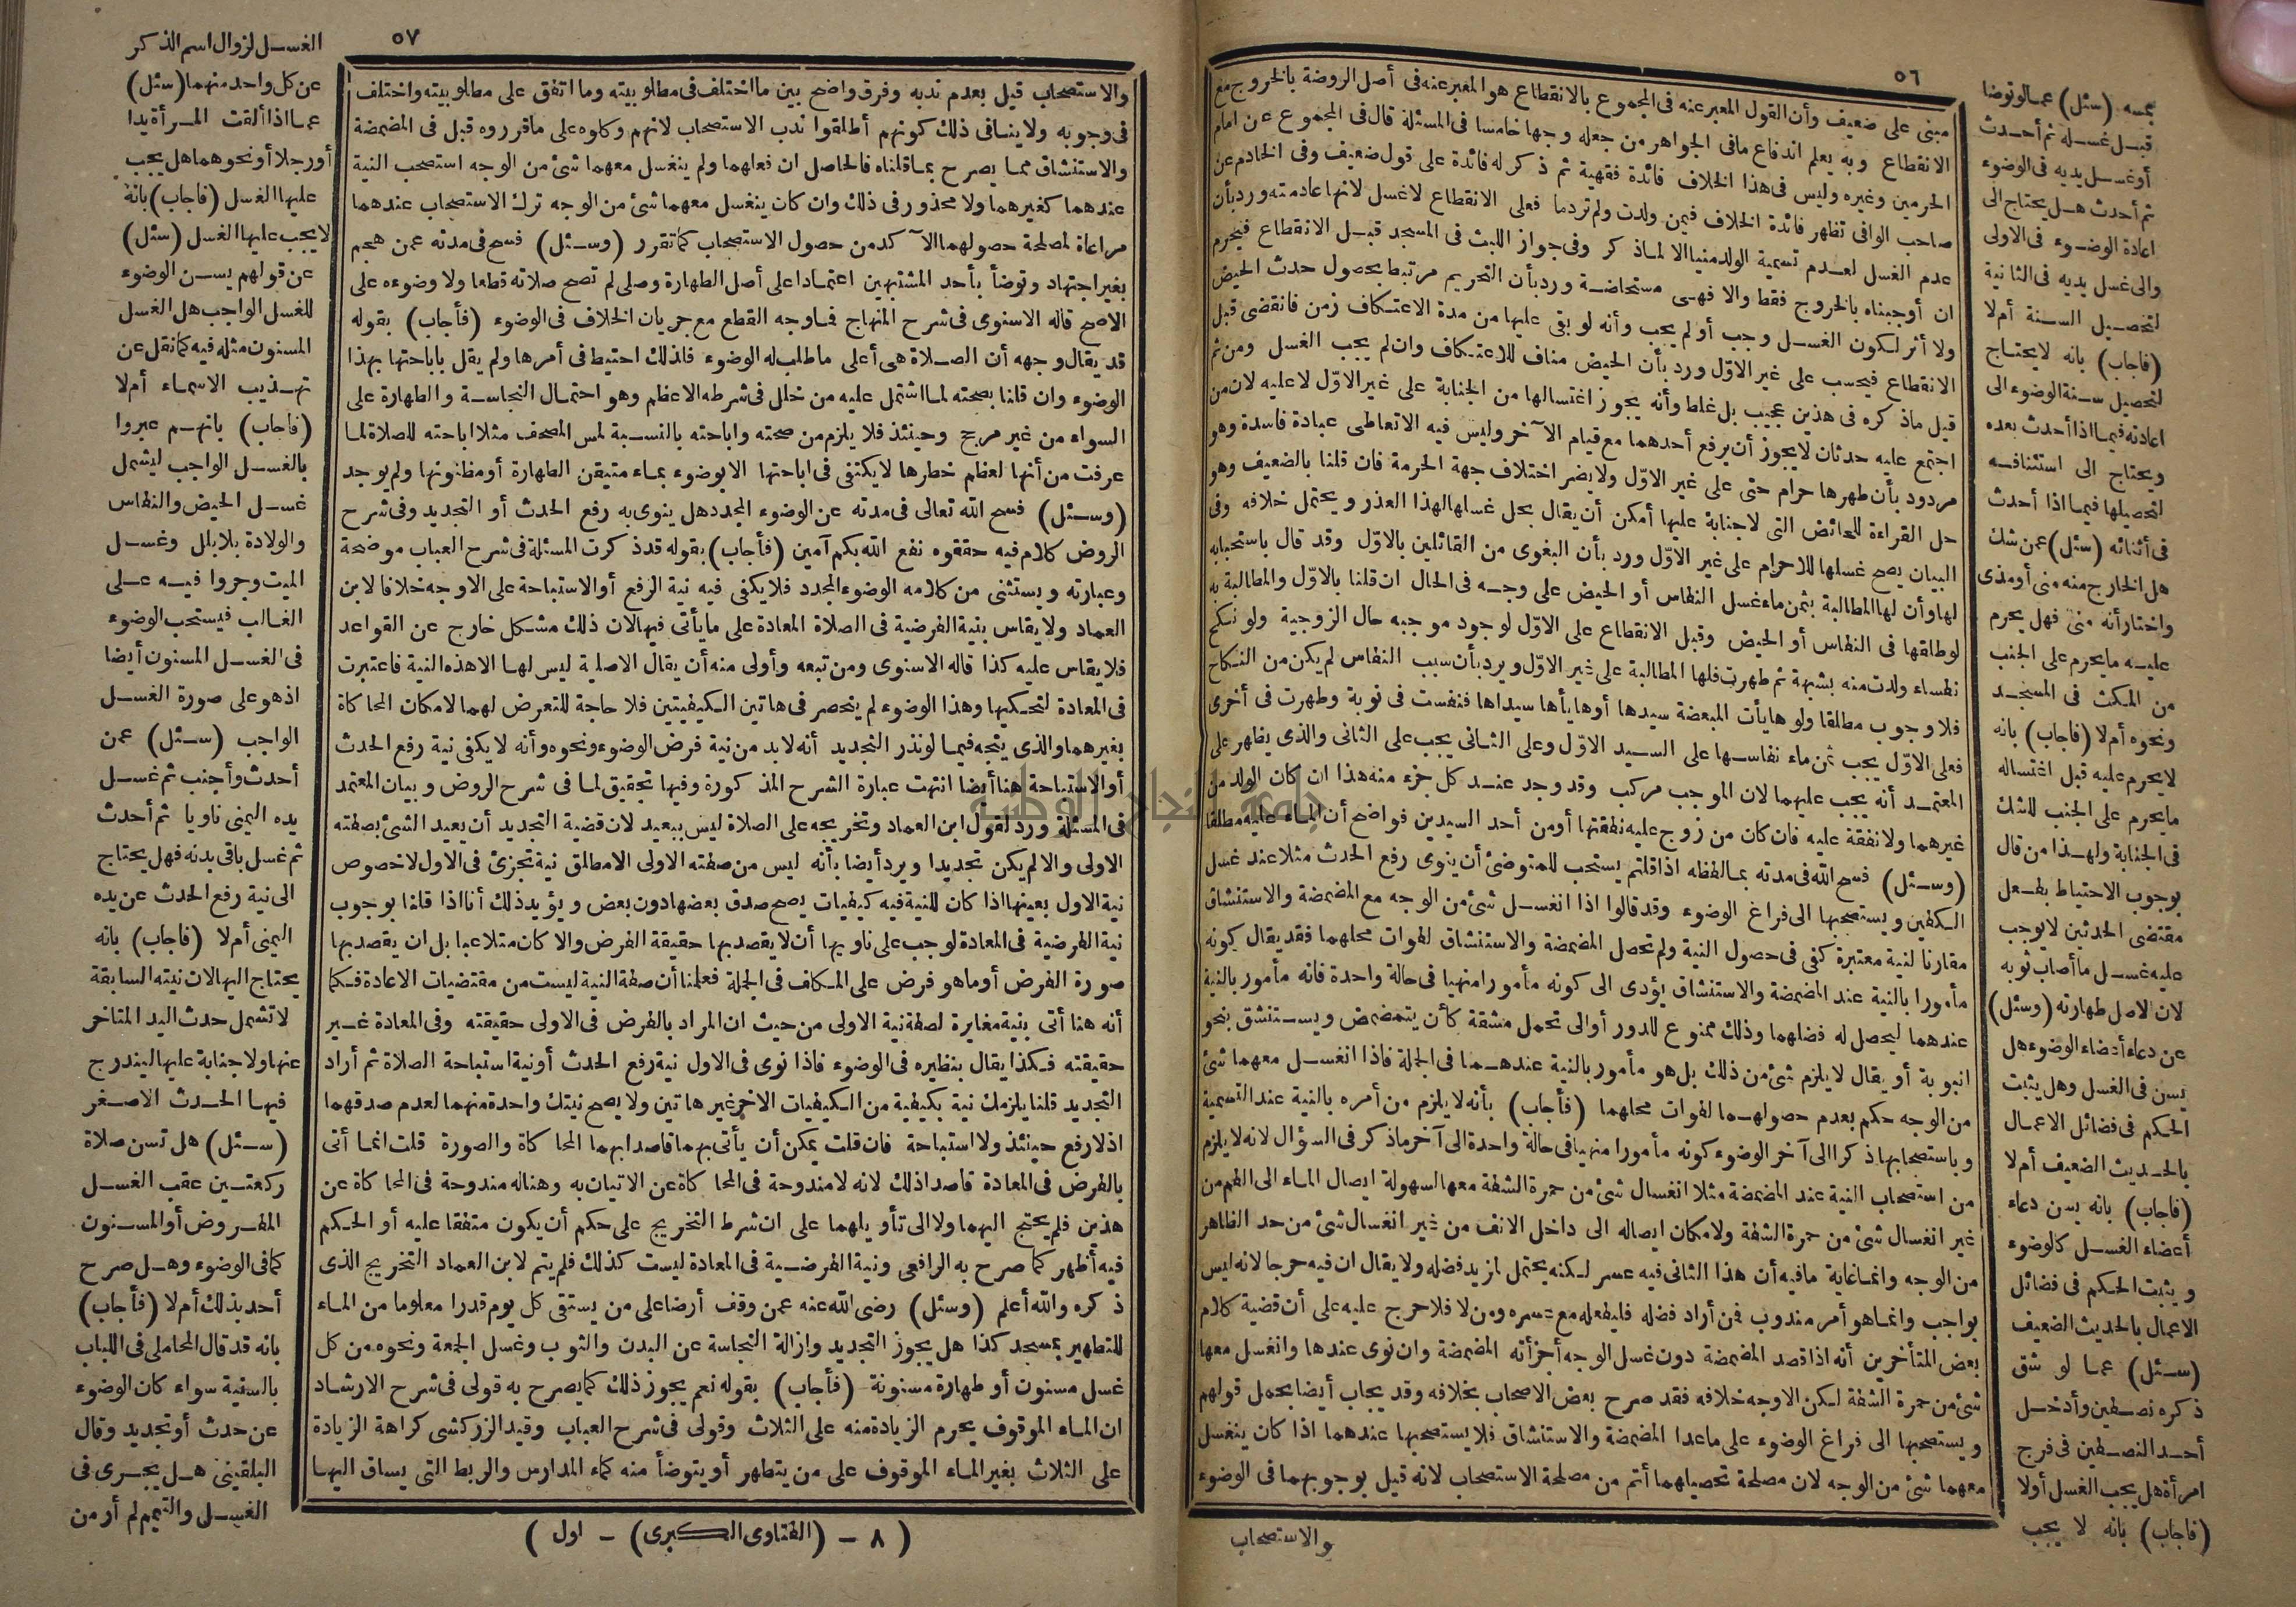 ٥٦
مبنى على ضعيف وأن القول المعبر عنه فى المجموع بالانقطاع هو المعبر عنه فى أصل الروضة بالخروج مع
الانقطاع وبه يعلم اندفاع مافى الجواهر من جعله وجها خامسا فى المسئلة قال فى المجموع عن امام
الحرمين وغيره وليس فى هذا الخلاف فائدة فقهية ثم ذكر له فائدة على قول ضعيف وفى الخادم عن
صاحب الوافى تظهر فائدة الخلاف فيمن ولدت ولم تردما فعلى الانقطاع لاغسل لانها عادمته وردبأن
عدم الغسل لعدم تسمية الولد منيا الا لماذكر وفى جواز اللبث فى المسجد قبل الانقطاع فيحرم
ان أوجبناه بالخروج فقط والا فهى مستحاضة وردبأن التحريم مرتبط بحصول حدث الحيض
ولا أثر لكون الغسل وجب أولم يجب وأنه لو بقى عليها من مدة الاعتكاف زمن فانقضى قبل
الانقطاع فيحسب على غير الاوّل وردبأن الحيض مناف للاعتكاف وان لم يجب الغسل ومن ثم
قيل ماذكره فى هذين عجيب بل غلط وأنه يجوز اغتسالها من الجنابة على غير الاوّل لاعليه لان من
اجتمع عليه حدثان لايجوز أن يرفع أحدهما مع قيام الآخر وليس فيه الاتعاطى عبادة فاسدة وهو
مردود بأن طهرها حرام حتى على غير الاوّل ولايضر اختلاف جهة الحرمة فان قلنا بالضعيف وهو
حل القراءة للحائض التى لاجنابة عليها أمكن أن يقال بحل غسلها لهذا العذر ويحتمل خلافه وفى
البيان يصح غسلها للاحرام على غير الاوّل وردبأن البغوى من القائلين بالاوّل وقد قال باستحبابه
لها وأن لها المطالبة بثمن ماء غسل النفاس أو الحيض على وجه فى الحال ان قلنا بالاوّل والمطالبة به
لوطلقها فى النفاس أو الحيض وقبل الانقطاع على الاوّل لوجود موجبه حال الزوجية ولو نكح
نفساء ولدت منه بشبهة ثم طهرت فلها المطالبة على غير الاوّل ويردبأن سبب النفاس لم يكن من النكاح
فلا وجوب مطلقا ولو هايأت المبعضة سيدها أوهايأها سيداها فنفست فى نوبة وطهرت فى أخرى
فعلى الاوّل يجب ثمن ماء نفاسها على السيد الاوّل وعلى الثانى يجب على الثانى والذى يظهر على
المعتمد أنه يجب عليهما لان الموجب مركب وقد وجد عند كل جزء منه هذا ان كان الولد من
غيرهما ولا نفقة عليه فان كان من زوج عليه نفقتها أومن أحد السيدين فواضح أن الماء عليه مطلقا
(وسئل) فسح الله فى مدته بمالفظه اذا قلتم يستحب للمتوضئ أن ينوى رفع الحدث مثلا عند غسل
الكفين ويستصحبها الى فراغ الوضوء وقد قالوا اذا انغسل شئ من الوجه مع المضمضة والاستنشاق
مقارنا لنية معتبرة كفى فى حصول النية ولم تحصل المضمضة والاستنشاق لفوات محلهما فقد يقال كونه
مأمورا بالنية عند المضمضة والاستنشاق يؤدى الى كونه مأمورا منهيا فى حالة واحدة فانه مأمور بالنية
عندهما ليحصل له فضلهما وذلك ممنوع للدور أو الى تحمل مشقة كأن يتمضمض ويستنشق بنحو
انبوبة أو يقال لايلزم شئ من ذلك بل هو مأمور بالنية عندهما فى الجملة فاذا انغسل معهما شئ
من الوجه حكم بعدم حصولهما لفوات محلهما (فأجاب) بأنه لايلزم من أمره بالنية عند التسمية
وباستصحابها ذكرا الى آخر الوضوء كونه مأمورا منهيا فى حالة واحدة الى آخر ماذكر فى السؤال لانه لايلزم
من استصحاب النية عند المضمضة مثلا انغسال شئ من حمرة الشفة معها لسهولة ايصال الماء الى الفم من
غير انغسال شئ من حمرة الشفة ولامكان ايصاله الى داخل الانف من غير انغسال شئ من حد الظاهر
من الوجه وانما غاية مافيه أن هذا الثانى فيه عسر لكنه يحتمل لمزيد فضله ولا يقال ان فيه حرجا لانه ليس
بواجب وانما هو أمر مندوب فمن أراد فضله فليفعله مع عسره ومن لا فلا حرج عليه على أن قضية كلام
بعض المتأخرين أنه اذا قصد المضمضة دون غسل الوجه أجزأته المضمضة وان نوى عندها وانغسل معها
شئ من حمرة الشفة لكن الاوجه خلافه فقد صرح بعض الاصحاب بخلافه وقد يجاب أيضا بحمل قولهم
ويستصحبها الى فراغ الوضوء على ماعدا المضمضة والاستنشاق فلا يستصحبها عندهما اذا كان ينغسل
معهما شئ من الوجه لان مصلحة تحصيلهما أتم من مصلحة الاستصحاب لانه قيل بوجوبهما فى الوضوء
والاستصحاب
(سئل) عمالو توضا
قبل غسله ثم أحدث
أو غسل يديه فى الوضوء
ثم أحدث هل يحتاج الى
اعادة الوضوء فى الاولى
والى غسل يديه فى الثانية
لتحصيل السنة أم لا
(فاجاب) بانه لايحتاج
لتحصيل سنة الوضوء الى
اعادته فيما اذا أحدث بعده
ويحتاج الى استئنافه
لتحصيلها فيما اذا أحدث
فى أثنائه (سئل) عمن شك
هل الخارج منه منى أومذى
واختار أنه منى فهل يحرم
عليه مايحرم على الجنب
من المكث فى المسجد
ونحوه أم لا (فاجاب) بانه
لايحرم عليه قبل اغتساله
مايحرم على الجنب للشك
فى الجنابة ولهذا من قال
بوجوب الاحتياط بفعل
مقتضى الحدثين لايوجب
عليه غسل ما أصاب ثوبه
لان الاصل طهارته (وسئل)
عن دعاء أعضاء الوضوء هل
يسن فى الغسل وهل يثبت
الحكم فى فضائل الاعمال
بالحديث الضعيف أم لا
(فاجاب) بانه يسن دعاء
أعضاء الغسل كالوضوء
ويثبت الحكم فى فضائل
الاعمال بالحديث الضعيف
(سئل) عما لو شق
ذكره نصفين وأدخل
أحد النصفين فى فرج
امرأة هل يجب الغسل أولا
(فاجاب) بانه لا يجب
٥٧
والاستصحاب قيل بعدم ندبه وفرق واضح بين ما اختلف فى مطلوبيته وما اتفق على مطلوبيته واختلف
فى وجوبه ولا ينافى ذلك كونهم أطلقوا ندب الاستصحاب لانهم وكلوه على ماقرروه قبل فى المضمضة
والاستنشاق مما يصرح بما قلناه فالحاصل ان فعلهما ولم ينغسل معهما شئ من الوجه استصحب النية
عندهما كغيرهما ولا محذور فى ذلك وان كان ينغسل معهما شئ من الوجه ترك الاستصحاب عندهما
مراعاة لمصلحة حصولهما الآكد من حصول الاستصحاب كما تقرر (وسئل) فسح فى مدته عمن هجم
بغير اجتهاد وتوضأ بأحد المشتبهين اعتمادا على أصل الطهارة وصلى لم تصح صلاته قطعا ولا وضوءه على
الاصح قاله الاسنوى فى شرح المنهاج فما وجه القطع مع جريان الخلاف فى الوضوء (فأجاب) بقوله
قد يقال وجهه أن الصلاة هى أعلى ماطلب له الوضوء فلذلك احتيط فى أمرها ولم يقل باباحتها بهذا
الوضوء وان قلنا بصحته لما اشتمل عليه من خلل فى شرطه الاعظم وهو احتمال النجاسة والطهارة على
السواء من غير مرجح وحينئذ فلا يلزم من صحته واباحته بالنسبة لمس المصحف مثلا اباحته للصلاة لما
عرفت من أنها لعظم خطرها لايكتفى فى اباحتها الا بوضوء بماء متيقن الطهارة أو مظنونها ولم يوجد
(وسئل) فسح الله تعالى فى مدته عن الوضوء المجدد هل ينوى به رفع الحدث أو التجديد وفى شرح
الروض كلام فيه حققوه نفع الله بكم آمين (فأجاب) بقوله قد ذكرت المسئلة فى شرح العباب موضحة
وعبارته ويستثنى من كلامه الوضوء المجدد فلا يكفى فيه نية الرفع أو الاستباحة على الاوجه خلافا لابن
العماد ولا يقاس بنية الفرضية فى الصلاة المعادة على ما يأتى فيها لان ذلك مشكل خارج عن القواعد
فلا يقاس عليه كذا قاله الاسنوى ومن تبعه وأولى منه أن يقال الاصلية ليس لها الا هذه النية فاعتبرت
فى المعادة لتحكيها وهذا الوضوء لم ينحصر فى هاتين الكيفيتين فلا حاجة للتعرض لهما لامكان المحاكاة
بغيرهما والذى يتجه فيما لو نذر التجديد أنه لابد من نية فرض الوضوء ونحوه وأنه لا يكفى نية رفع الحدث
أو الاستباحة هنا أيضا انتهت عبارة الشرح المذكورة وفيها تحقيق لما فى شرح الروض وبيان المعتمد
فى المسئلة ورد لقول ابن العماد وتخريجه على الصلاة ليس ببعيد لان قضية التجديد أن يعيد الشئ بصفته
الاولى والا لم يكن تجديدا ويرد أيضا بأنه ليس من صفته الاولى الا مطلق نية تجزئ فى الاول لاخصوص
نية الاول بعينها اذا كان للنية فيه كيفيات يصح صدق بعضها دون بعض ويؤيد ذلك أنا اذا قلنا بوجوب
نية الفرضية فى المعادة لوجب على ناويها أن لايقصد بها حقيقة الفرض والا كان متلاعبا بل ان يقصد بها
صورة الفرض أو ما هو فرض على المكلف فى الجملة فعلمنا أن صفة النية ليست من مقتضيات الاعادة فكما
أنه هنا أتى بنية مغايرة لصفة نية الاولى من حيث ان المراد بالفرض فى الاولى حقيقته وفى المعادة غير
حقيقته فكذا يقال بنظيره فى الوضوء فاذا نوى فى الاول نية رفع الحدث أو نية استباحة الصلاة ثم أراد
التجديد قلنا يلزمك نية بكيفية من الكيفيات الاخر غير هاتين ولا يصح نيتك واحدة منهما لعدم صدقهما
اذ لا رفع حينئذ ولا استباحة فان قلت يمكن أن يأتى بهما قاصدا بهما المحاكاة والصورة قلت انما أتى
بالفرض فى المعادة قاصدا ذلك لانه لا مندوحة فى المحاكاة عن الاتيان به وهنا له مندوحة فى المحاكاة عن
هذين فلم يحتج اليهما ولا الى تأويلهما على ان شرط التخريج على حكم أن يكون متفقا عليه أو الحكم
فيه أظهر كما صرح به الرافعى ونية الفرضية فى المعادة ليست كذلك فلم يتم لابن العماد التخريج الذى
ذكره والله أعلم (وسئل) رضى الله عنه عمن وقف أرضا على من يستقى كل يوم قدرا معلوما من الماء
للتطهير بمسجد كذا هل يجوز التجديد وازالة النجاسة عن البدن والثوب وغسل الجمعة ونحوه من كل
غسل مسنون أو طهارة مسنونة (فأجاب) بقوله نعم يجوز ذلك كما يصرح به قولى فى شرح الارشاد
ان الماء الموقوف يحرم الزيادة منه على الثلاث وقولى فى شرح العباب وقيد الزركشى كراهة الزيادة
على الثلاث بغير الماء الموقوف على من يتطهر أو يتوضأ منه كماء المدارس والربط التى يساق اليها
(٨ - (الفتاوى الكبرى) - اول)
الغسل لزوال اسم الذكر
عن كل واحد منهما (سئل)
عما اذا ألقت المرأة يدا
أو رجلا أو نحوهما هل يجب
عليها الغسل (فاجاب) بانه
لايجب عليها الغسل (سئل)
عن قولهم يسن الوضوء
للغسل الواجب هل الغسل
المسنون مثله فيه كما نقل عن
تهذيب الاسماء أم لا
(فاجاب) بانهم عبروا
بالغسل الواجب ليشمل
غسل الحيض والنفاس
والولادة بلا بلل وغسل
الميت وجروا فيه على
الغالب فيستحب الوضوء
فى الغسل المسنون أيضا
اذ هو على صورة الغسل
الواجب (سئل) عمن
أحدث وأجنب ثم غسل
يده اليمنى ناويا ثم أحدث
ثم غسل باقى بدنه فهل يحتاج
الى نية رفع الحدث عن يده
اليمنى أم لا (فاجاب) بانه
يحتاج اليها لان نيته السابقة
لا تشمل حدث اليد المتاخر
عنها ولا جنابة عليها ليندرج
فيها الحدث الاصغر
(سئل) هل تسن صلاة
ركعتين عقب الغسل
المفروض أو المسنون
كما فى الوضوء وهل صرح
أحد بذلك أم لا (فأجاب)
بانه قد قال المحاملى فى اللباب
بالسنية سواء كان الوضوء
عن حدث أو تجديد وقال
البلقينى هل يجرى فى
الغسل والتيمم لم أر من
جامعة النجاح الوطنية